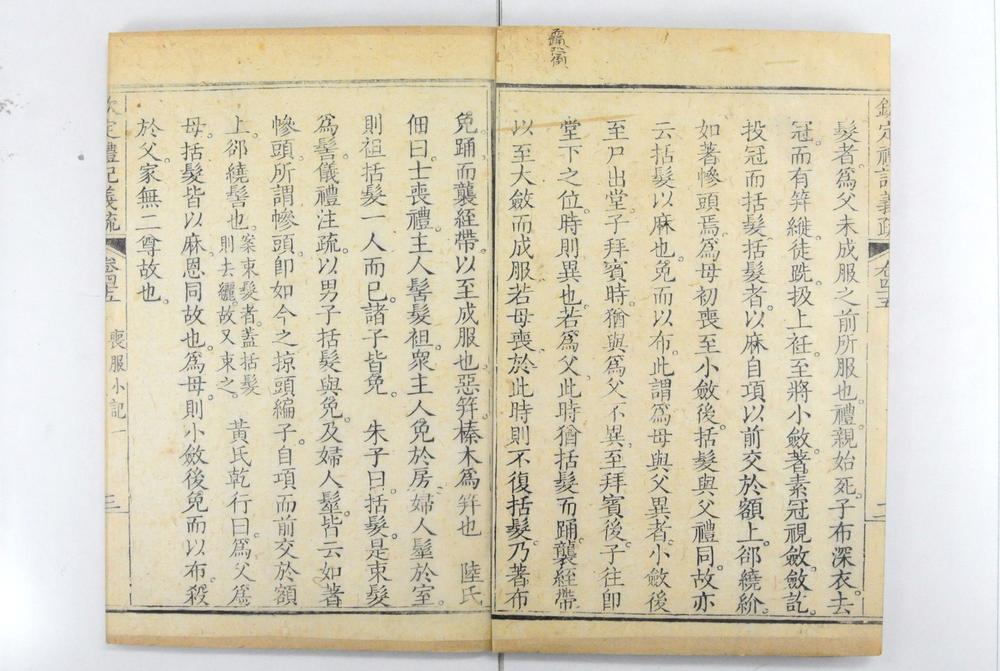 欽定禮記義疏 卷四五 二
髮者爲父未成服之前所服也禮親始死子布深衣去
冠而有笄縰徒跣扱上衽至將小斂著素冠視斂斂訖
投冠而括髮括髮者以麻自項以前交於額上郤繞紒
如著幓頭焉爲母初喪至小斂後括髮與父禮同故亦
云括髮以麻也免而以布此謂爲母與父異者小斂後
至尸出堂子拜賓時猶與爲父不異至拜賓後子往卽
堂下之位時則異也若爲父此時猶括髮而踊襲絰帶
以至大斂而成服若母喪於此時則不復括髮乃著布
免踊而襲絰帶以至成服也惡笄榛木爲笄也 陸氏
佃曰士喪禮主人髺髮袒衆主人免於房婦人髽於室
則袒括髮一人而已諸子皆免 朱子曰括髮是束髮
爲髻儀禮注疏以男子括髮與免及婦人髽皆云如著
幓頭所謂幓頭卽如今之掠頭編子自項而前交於額
上郤繞髻也案束髮者蓋括髮則去纚故又束之 黃氏乾行曰爲父爲
母括髮皆以麻恩同故也爲母則小斂後免而以布殺
於父家無二尊故也
欽定禮記義疏 卷四五 喪服小記一 三